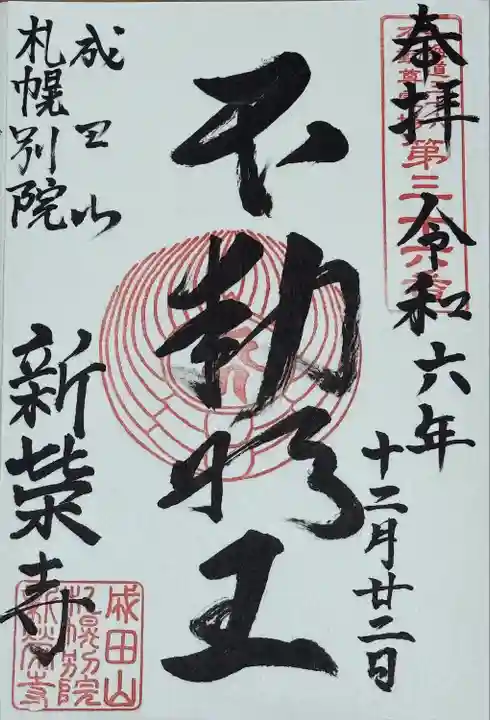 奉拝
令和六年
十二月廿二日
第三十六番
不動明王
成田山
札幌別院
新栄寺
成田山
札幌別院
新栄寺